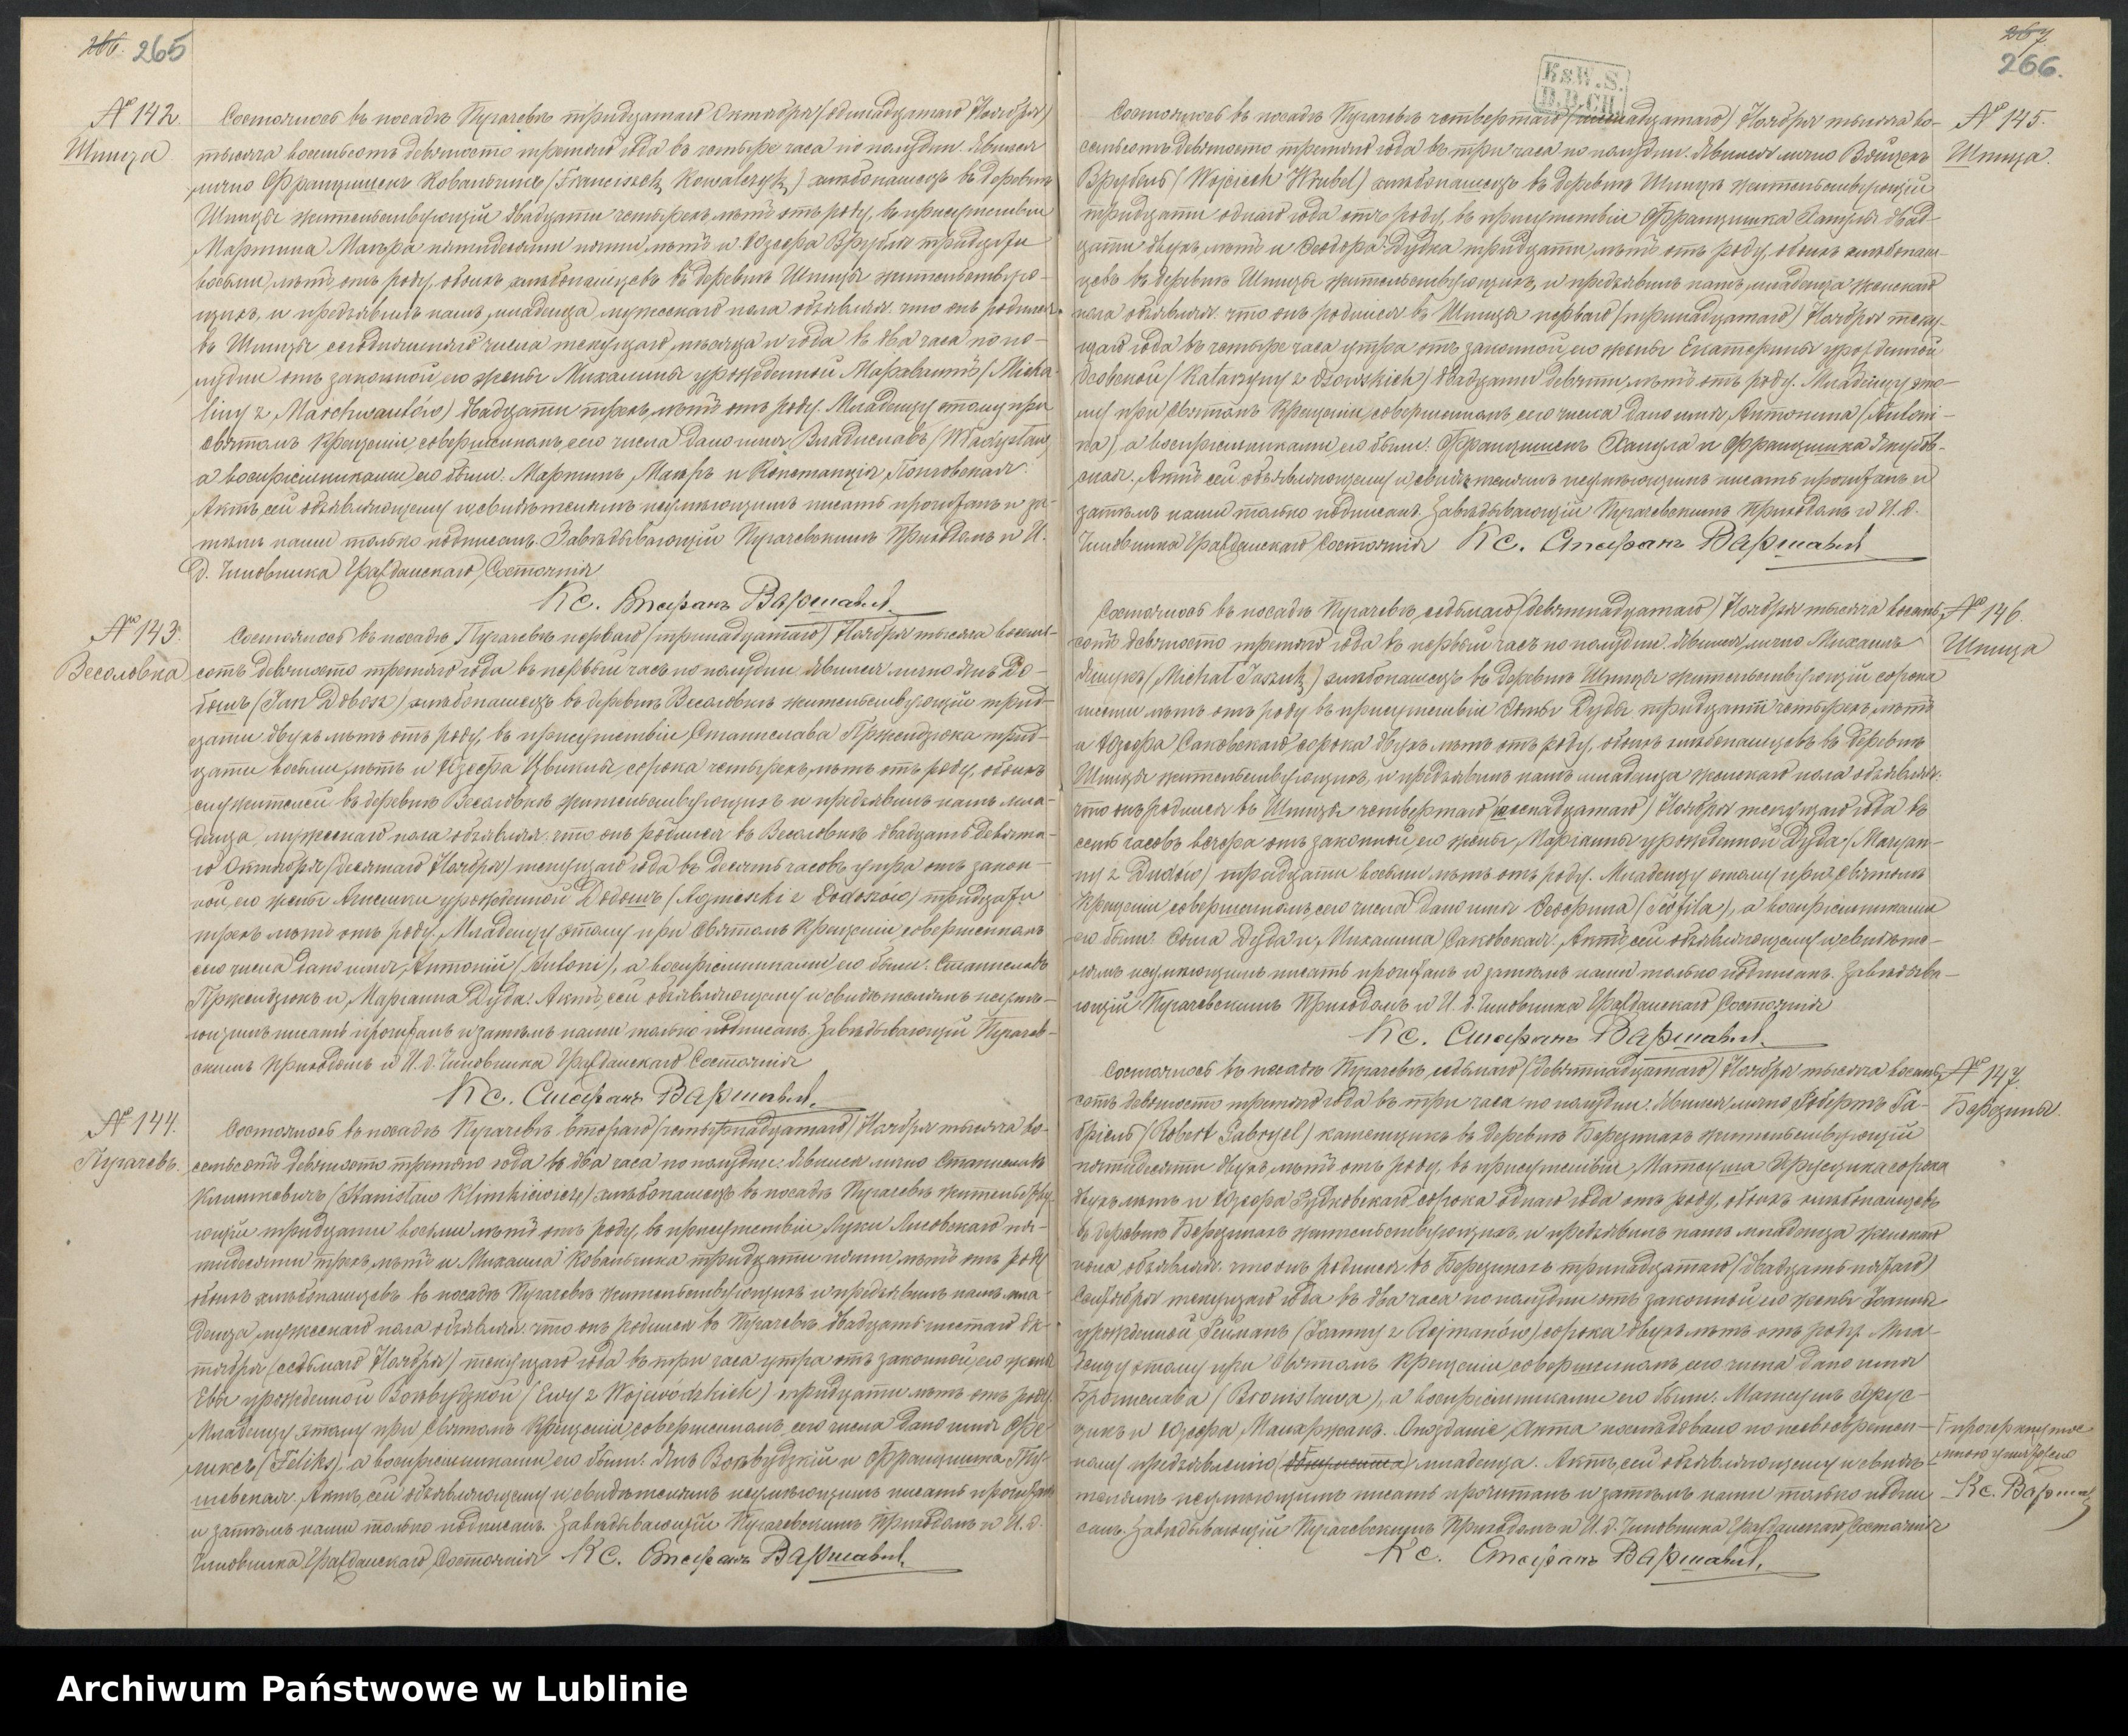 266. 265
№ 142.
Шпица
Состоялось въ посадѣ Пугачевѣ тридцатаго Октября (одинадцатаго Ноября)
тысяча восемьсотъ девяносто третяго года въ четыре часа по полудни. Явился
лично Францишекъ Ковальчикъ (Franciszek Kowalczyk) хлѣбопашецъ въ деревнѣ
Шпица жительствующій двадцати четырехъ лѣтъ отъ роду, въ присутствіи
Мартина Маъра пятидесяти пяти лѣтъ и Юзефа Врубля тридцати
восьми лѣтъ отъ роду, обоихъ хлѣбопашцевъ въ деревнѣ Шпица жительствую-
щихъ, и предъявилъ намъ младенца мужескаго пола объявляя что онъ родился
въ Шпица сегодняшняго числа текущаго мѣсяца и года въ два часа по по-
лудни отъ законной его жены Михалины урожденной Мархвантъ (Micha-
liny z Marchwantów) двадцати трехъ лѣтъ отъ роду. Младенцу этому при
Святомъ Крещеніи совершенномъ сего числа дано имя Владиславъ (Władysław)
а воспріемниками его были: Мартинъ Маъръ и Констанція
Актъ сей объявляющему и свидѣтелямъ неумѣющимъ писать прочитанъ и за-
тѣмъ нами только подписанъ. Завѣдывающій Пугачевскимъ Приходомъ и И.
д. Чиновника Гражданскаго Состоянія
Кс. Стефанъ Варшавы
№ 143.
Весоловка
Состоялось въ посадѣ Пугачевѣ перваго (тринадцатаго) Ноября тысяча восемь-
сотъ девяносто третяго года въ первый часъ по полудни. Явился лично Янъ До-
бошъ (Jan Dobosz) хлѣбопашецъ въ деревнѣ Весоловкѣ жительствующій трид-
цати двухъ лѣтъ отъ роду, въ присутствіи Станислава Пржендзюка трид-
цати восьми лѣтъ и Юзефа сорока четырехъ лѣтъ отъ роду, обоихъ
служителей въ деревнѣ Весоловкѣ жительствующихъ и предъявилъ намъ мла-
денца мужескаго пола объявляя что онъ родился въ Весоловкѣ двадцать девята-
го Октября (десятаго Ноября) текущаго года въ десять часовъ утра отъ закон-
ной его жены Агнешки урожденной Додошъ (Agnieszki z Dodoszów) тридцати
трехъ лѣтъ отъ роду. Младенцу этому при Святомъ Крещеніи совершенномъ
сего числа дано имя Антоній (Antoni), а воспріемниками его были: Станиславъ
Пржендзюкъ и Маріанна Дуда. Актъ сей объявляющему и свидѣтелямъ неумѣ-
ющимъ писать прочитанъ и затѣмъ нами только подписанъ. Завѣдывающій Пугачев-
скимъ Приходомъ и И. д. Чиновника Гражданскаго Состоянія
Кс. Стефанъ Варшавы
№ 144.
Пугачевъ.
Состоялось въ посадѣ Пугачевѣ втораго (четырнадцатаго) Ноября тысяча во-
семьсотъ девяносто третяго года въ два часа по полудни. Явился лично Станиславъ
Климкевичъ (Stanisław Klimkiewicz) хлѣбопашецъ въ посадѣ Пугачевѣ жительству-
ющій тридцати восьми лѣтъ отъ роду, въ присутствіи Луки Лисовскаго пя-
тидесяти трехъ лѣтъ и Михаила Ковальчика тридцати пяти лѣтъ отъ роду
обоихъ хлѣбопашцевъ въ посадѣ Пугачевѣ жительствующихъ и предъявилъ намъ мла-
денца мужескаго пола объявляя что онъ родился въ Пугачевѣ двадцать шестаго Ок-
тября (седьмаго Ноября) текущаго года въ три часа утра отъ законной его жены
Евы урожденной Воѣвудзкой (Ewy z Wojewódzkich) тридцати лѣтъ отъ роду.
Младенцу этому при Святомъ Крещеніи совершенномъ сего числа дано имя Фе-
ликсъ (Feliks), а воспріемниками его были: Янъ Воѣвудзкій и Францишка
Актъ сей объявляющему и свидѣтелямъ неумѣющимъ писать прочитанъ
и затѣмъ нами только подписанъ. Завѣдывающій Пугачевскимъ Приходомъ и И. д.
Чиновника Гражданскаго Состоянія Кс. Стефанъ Варшавы
267
266.
K&W.S.
D.D.CH.
№ 145.
Шпица.
Состоялось въ посадѣ Пугачевѣ четвертаго (шестнадцатаго) Ноября тысяча во-
семьсотъ девяносто третяго года въ три часа по полудни. Явился лично Войцехъ
Врубель (Wojciech Wrubel) хлѣбопашецъ въ деревнѣ Шпица жительствующій
тридцати одного года отъ роду, въ присутствіи Францишка двад-
цати двухъ лѣтъ и Теодора Дудка тридцати лѣтъ отъ роду, обоихъ хлѣбопаш-
цевъ въ деревнѣ Шпица жительствующихъ, и предъявилъ намъ младенца женскаго
пола объявляя что онъ родился въ Шпица перваго (тринадцатаго) Ноября теку-
щаго года въ четыре часа утра отъ законной его жены Екатерины урожденной
(Katarzyny z Osowskich) двадцати девяти лѣтъ отъ роду. Младенцу это-
му при Святомъ Крещеніи совершенномъ сего числа дано имя Антонина (Antoni-
na), а воспріемниками его были: Францишекъ и Францишка
Актъ сей объявляющему и свидѣтелямъ неумѣющимъ писать прочитанъ и
затѣмъ нами только подписанъ. Завѣдывающій Пугачевскимъ Приходомъ и И. д.
Чиновника Гражданскаго Состоянія Кс. Стефанъ Варшавы
№ 146.
Шпица
Состоялось въ посадѣ Пугачевѣ седьмаго (девятнадцатаго) Ноября тысяча восемь-
сотъ девяносто третяго года въ первый часъ по полудни. Явился лично Михаилъ
Яшукъ (Michał Jaszuk) хлѣбопашецъ въ деревнѣ Шпица жительствующій сорока
шести лѣтъ отъ роду въ присутствіи Ѳомы Дуды тридцати четырехъ лѣтъ
и Юзефа Саковскаго сорока двухъ лѣтъ отъ роду, обоихъ хлѣбопашцевъ въ деревнѣ
Шпица жительствующихъ, и предъявилъ намъ младенца женскаго пола объявляя
что онъ родился въ Шпица четвертаго (шестнадцатаго) Ноября текущаго года въ
семь часовъ вечера отъ законной его жены Маріанны урожденной Дуда (Maryan-
ny z Dudów) тридцати восьми лѣтъ отъ роду. Младенцу этому при Святомъ
Крещеніи совершенномъ сего числа дано имя Теофила (Teófila), а воспріемниками
его были: Ѳома Дуда и Михалина Саковская. Актъ сей объявляющему и свидѣте-
лямъ неумѣющимъ писать прочитанъ и затѣмъ нами только подписанъ. Завѣдыва-
ющій Пугачевскимъ Приходомъ и И. д. Чиновника Гражданскаго Состоянія
Кс. Стефанъ Варшавы
№ 147.
Березины.
Состоялось въ посадѣ Пугачевѣ седьмаго (девятнадцатаго) Ноября тысяча восемь-
сотъ девяносто третяго года въ три часа по полудни. Явился лично Робертъ Га-
бріель (Robert Gabryel) каменщикъ въ деревнѣ Березинахъ жительствующій
пятидесяти двухъ лѣтъ отъ роду, въ присутствіи Матеуша сорока
двухъ лѣтъ и Юзефа Зудковскаго сорока одного года отъ роду, обоихъ хлѣбопашцевъ
въ деревнѣ Березинахъ жительствующихъ, и предъявилъ намъ младенца женскаго
пола объявляя что онъ родился въ Березинахъ тринадцатаго (двадцать пятаго)
Сентября текущаго года въ два часа по полудни отъ законной его жены Іоанны
урожденной Рейманъ (Joanny z Rejmanów) сорока двухъ лѣтъ отъ роду. Мла-
денцу этому при Святомъ Крещеніи совершенномъ сего числа дано имя
Бронислава (Bronisława), а воспріемниками его были: Матеушъ
и Юзефа Опозданіе Акта послѣдовало по несвоевремен-
ному предъявленію младенца. Актъ сей объявляющему и свидѣ-
телямъ неумѣющимъ писать прочитанъ и затѣмъ нами только подпи-
санъ. Завѣдывающій Пугачевскимъ Приходомъ и И. д. Чиновника Гражданскаго Состоянія
Кс. Стефанъ Варшавы
Кс. Варшавы
Archiwum Państwowe w Lublinie